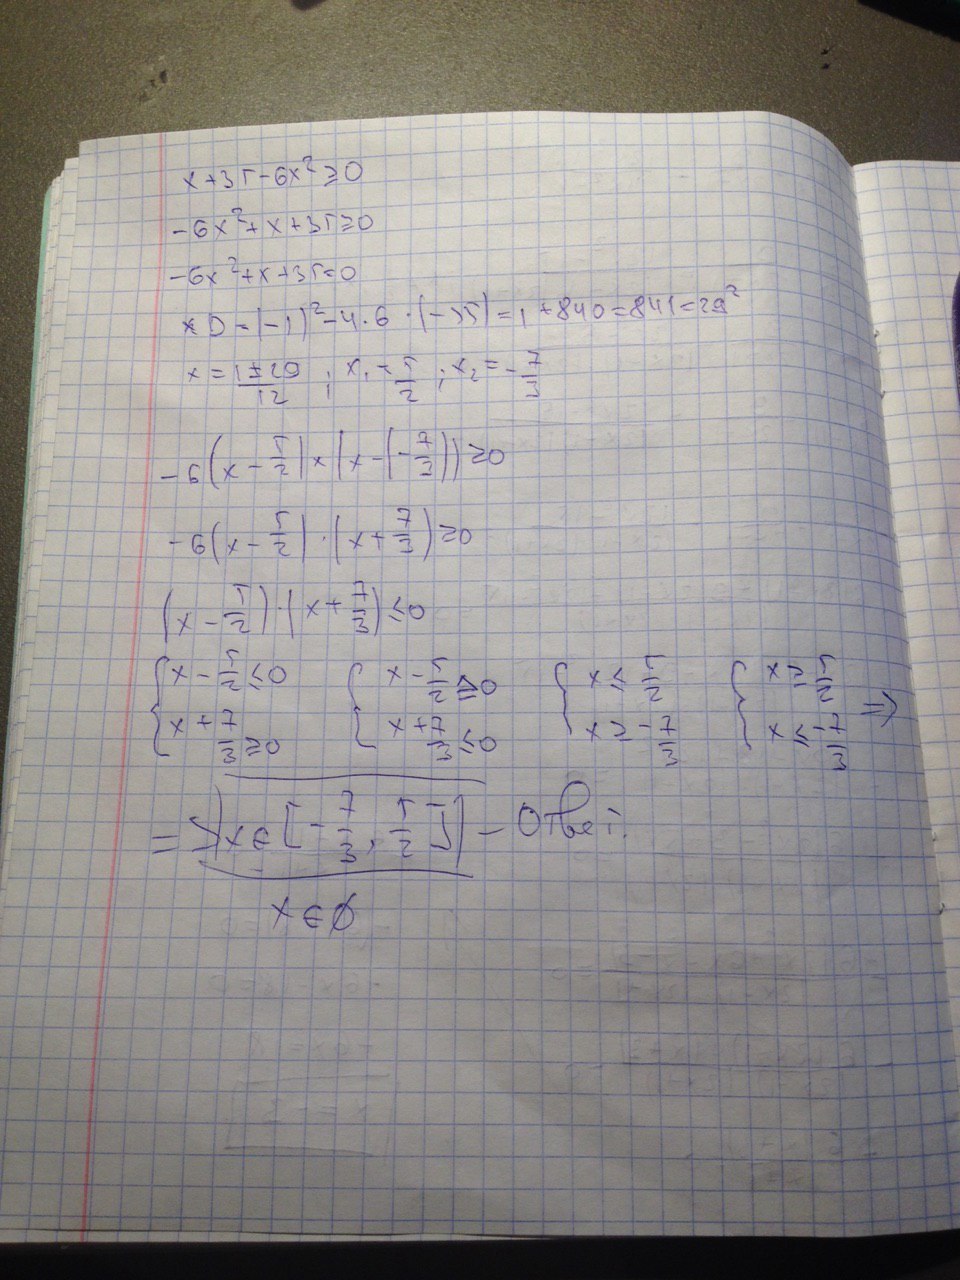 x+35-6x²≥0
-6x²+x+35≥0
-6x²+x+35=0
x D=(-1)²-4·6·(-35)=1+840=841=29²
x=1±29/12 ; x₁=5/2 ; x₂=-7/3
-6(x-5/2)×(x-(-7/3))≥0
-6(x-5/2)·(x+7/3)≥0
(x-5/2)·(x+7/3)≤0
{x-5/2≤0 {x-5/2≥0 {x≤5/2 {x≥5/2
x+7/3≥0 x+7/3≤0 x≥-7/3 x≤-7/3 ⇒
⇒ x∈[-7/3, 5/2] - Ответ.
x∈∅